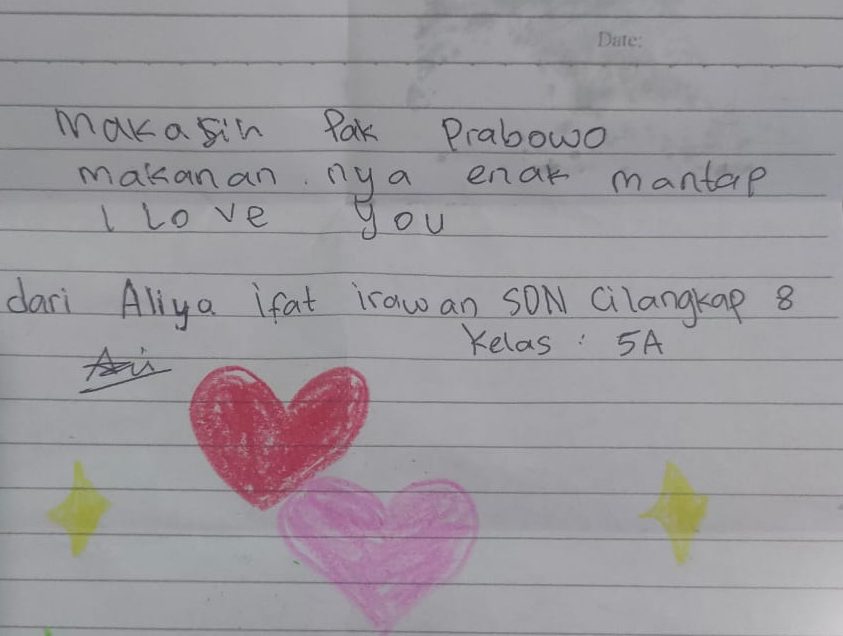 Date:
Makasih Pak Prabowo
makanan.nya enak mantap
I Love you
dari Aliya ifat irawan SDN Cilangkap 8
Kelas : 5A